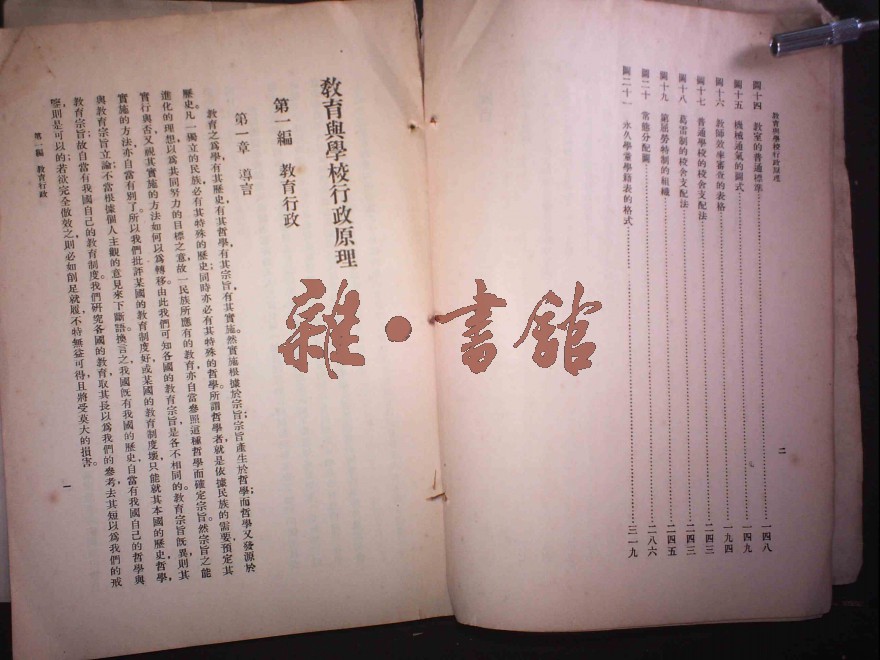 教育與學校行政原理
二
圖十四 教室的普通標準 一四八
圖十五 機械通氣的圖式 一四九
圖十六 教師效率審查的表格 一九四
圖十七 普通學校的校舍支配法 二四三
圖十八 葛雷制的校舍支配法 二四三
圖十九 第屈勞特制的組織 二四五
圖二十 常態分配圖 二八六
圖二十一 永久學業學籍表的格式 三一九
教育與學校行政原理
第一編 教育行政
第一章 導言
教育之爲學有其歷史有其哲學有其宗旨有其實施然實施根據於宗旨宗旨產生於哲學而哲學又發源於
歷史。凡一獨立的民族必有其特殊的歷史;同時亦必有其特殊的哲學。所謂哲學者就是依據民族的需要預定其
進化的理想以爲共同努力的目標之意故一民族所應有的教育亦自當參照這種哲學而確定宗旨然宗旨之能
實行與否又視其實施的方法如何以爲轉移由此我們可知各國的教育宗旨是各不相同的。教育宗旨既異則其
實施的方法亦自當有別了。所以我們批評某國的教育制度好或某國的教育制度壞只能就其本國的歷史哲學,
與教育宗旨立論;不當根據個人主觀的意見來下斷語。換言之我國既有我國的歷史自當有我國自己的哲學與
教育宗旨;故自當有我國自己的教育制度。我們研究各國的教育取其長以爲我們的參考去其短以爲我們的戒
鑒則是可以的;若欲完全倣效之則必如削足就履,不特無益可得且將受莫大的損害。
第一編 教育行政
一
雜·書館